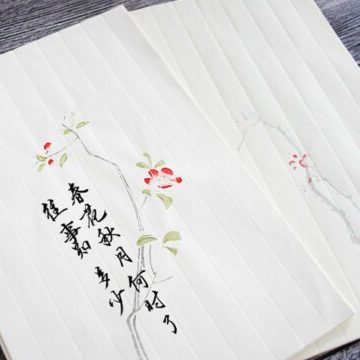 春花秋月何时了
往事知多少